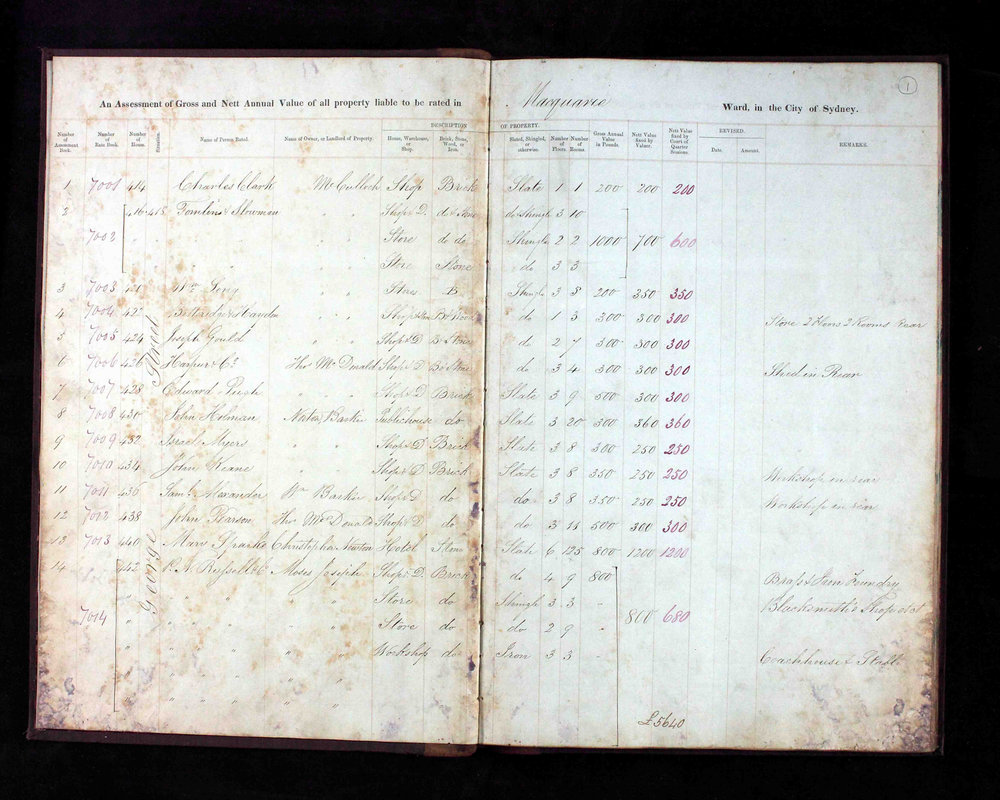 1
An Assessment of Gross and Nett Annual Value of all property liable to be rated in Macquarie Ward, in the City of Sydney.
DESCRIPTION OF PROPERTY. REVISED.
Number of Assessment Book. Number of Rate Book. Number of House. Situation. Name of Person Rated. Name of Owner, or Landlord of Property. House, Warehouse, or Shop. Brick, Stone, Wood, or Iron. Slated, Shingled, or otherwise. Number of Floors. Number of Rooms. Gross Annual Value in Pounds. Nett Value fixed by Valuer. Nett Value fixed by Court of Quarter Sessions. Date. Amount. REMARKS.
George Street
1 7001 414 Charles Clark McCulloch Shop Brick Slate 1 1 200 200 200
2 416 418 Tomlins & Shop & D. do & Stone do Shingle 3 10
7002 " " " Store do do Shingle 2 2 1000 700 600
Store Stone do 3 3
3 7003 Wm Long " " Store B Shingle 3 8 350 350
4 7004 422 & Hayden " " do 1 3 300 300 300 Stove 2 Rooms Rear
5 7005 424 Joseph Gould " " Shop & D B & Stone do 2 7 300 300 300
6 7006 426 Harpur & Co. Thos McDonald Shop & D B & Stone do 3 4 300 300 300 Shed in Rear
7 7007 428 Edward " " Shop & D Brick Slate 3 9 300 300
8 7008 430 John Holman Public house do Slate 3 20 500 360 360
9 7009 432 Israel Myers " " Shop & D Brick Slate 3 8 300 250 250
10 7010 434 John Keane Shop & D Brick Slate 3 8 350 250 250 Workshop in rear
11 7011 436 Saml. Alexander Wm Barker Shop & D do do 3 8 350 250 250 Workshop in rear
12 7012 438 John Pearson Thos McDonald Shop & D do do 3 11 500 300 300
13 7013 440 Mary Sparks Christopher Newton Hotel Stone Slate 6 125 800 1200 1200
14 442 R. N. Russell & Co Moses Joseph Shop & D. Brick do 4 9 800 Brass & Iron Foundry
" " " " " Store do Shingle 3 3 - Blacksmith's Shop
7014 " " " " " Store do do 2 9 - 800 680
" " " " " Workshop do Iron 3 3 - Coachhouse & Stable
" " " " "
" " " " "
£5640